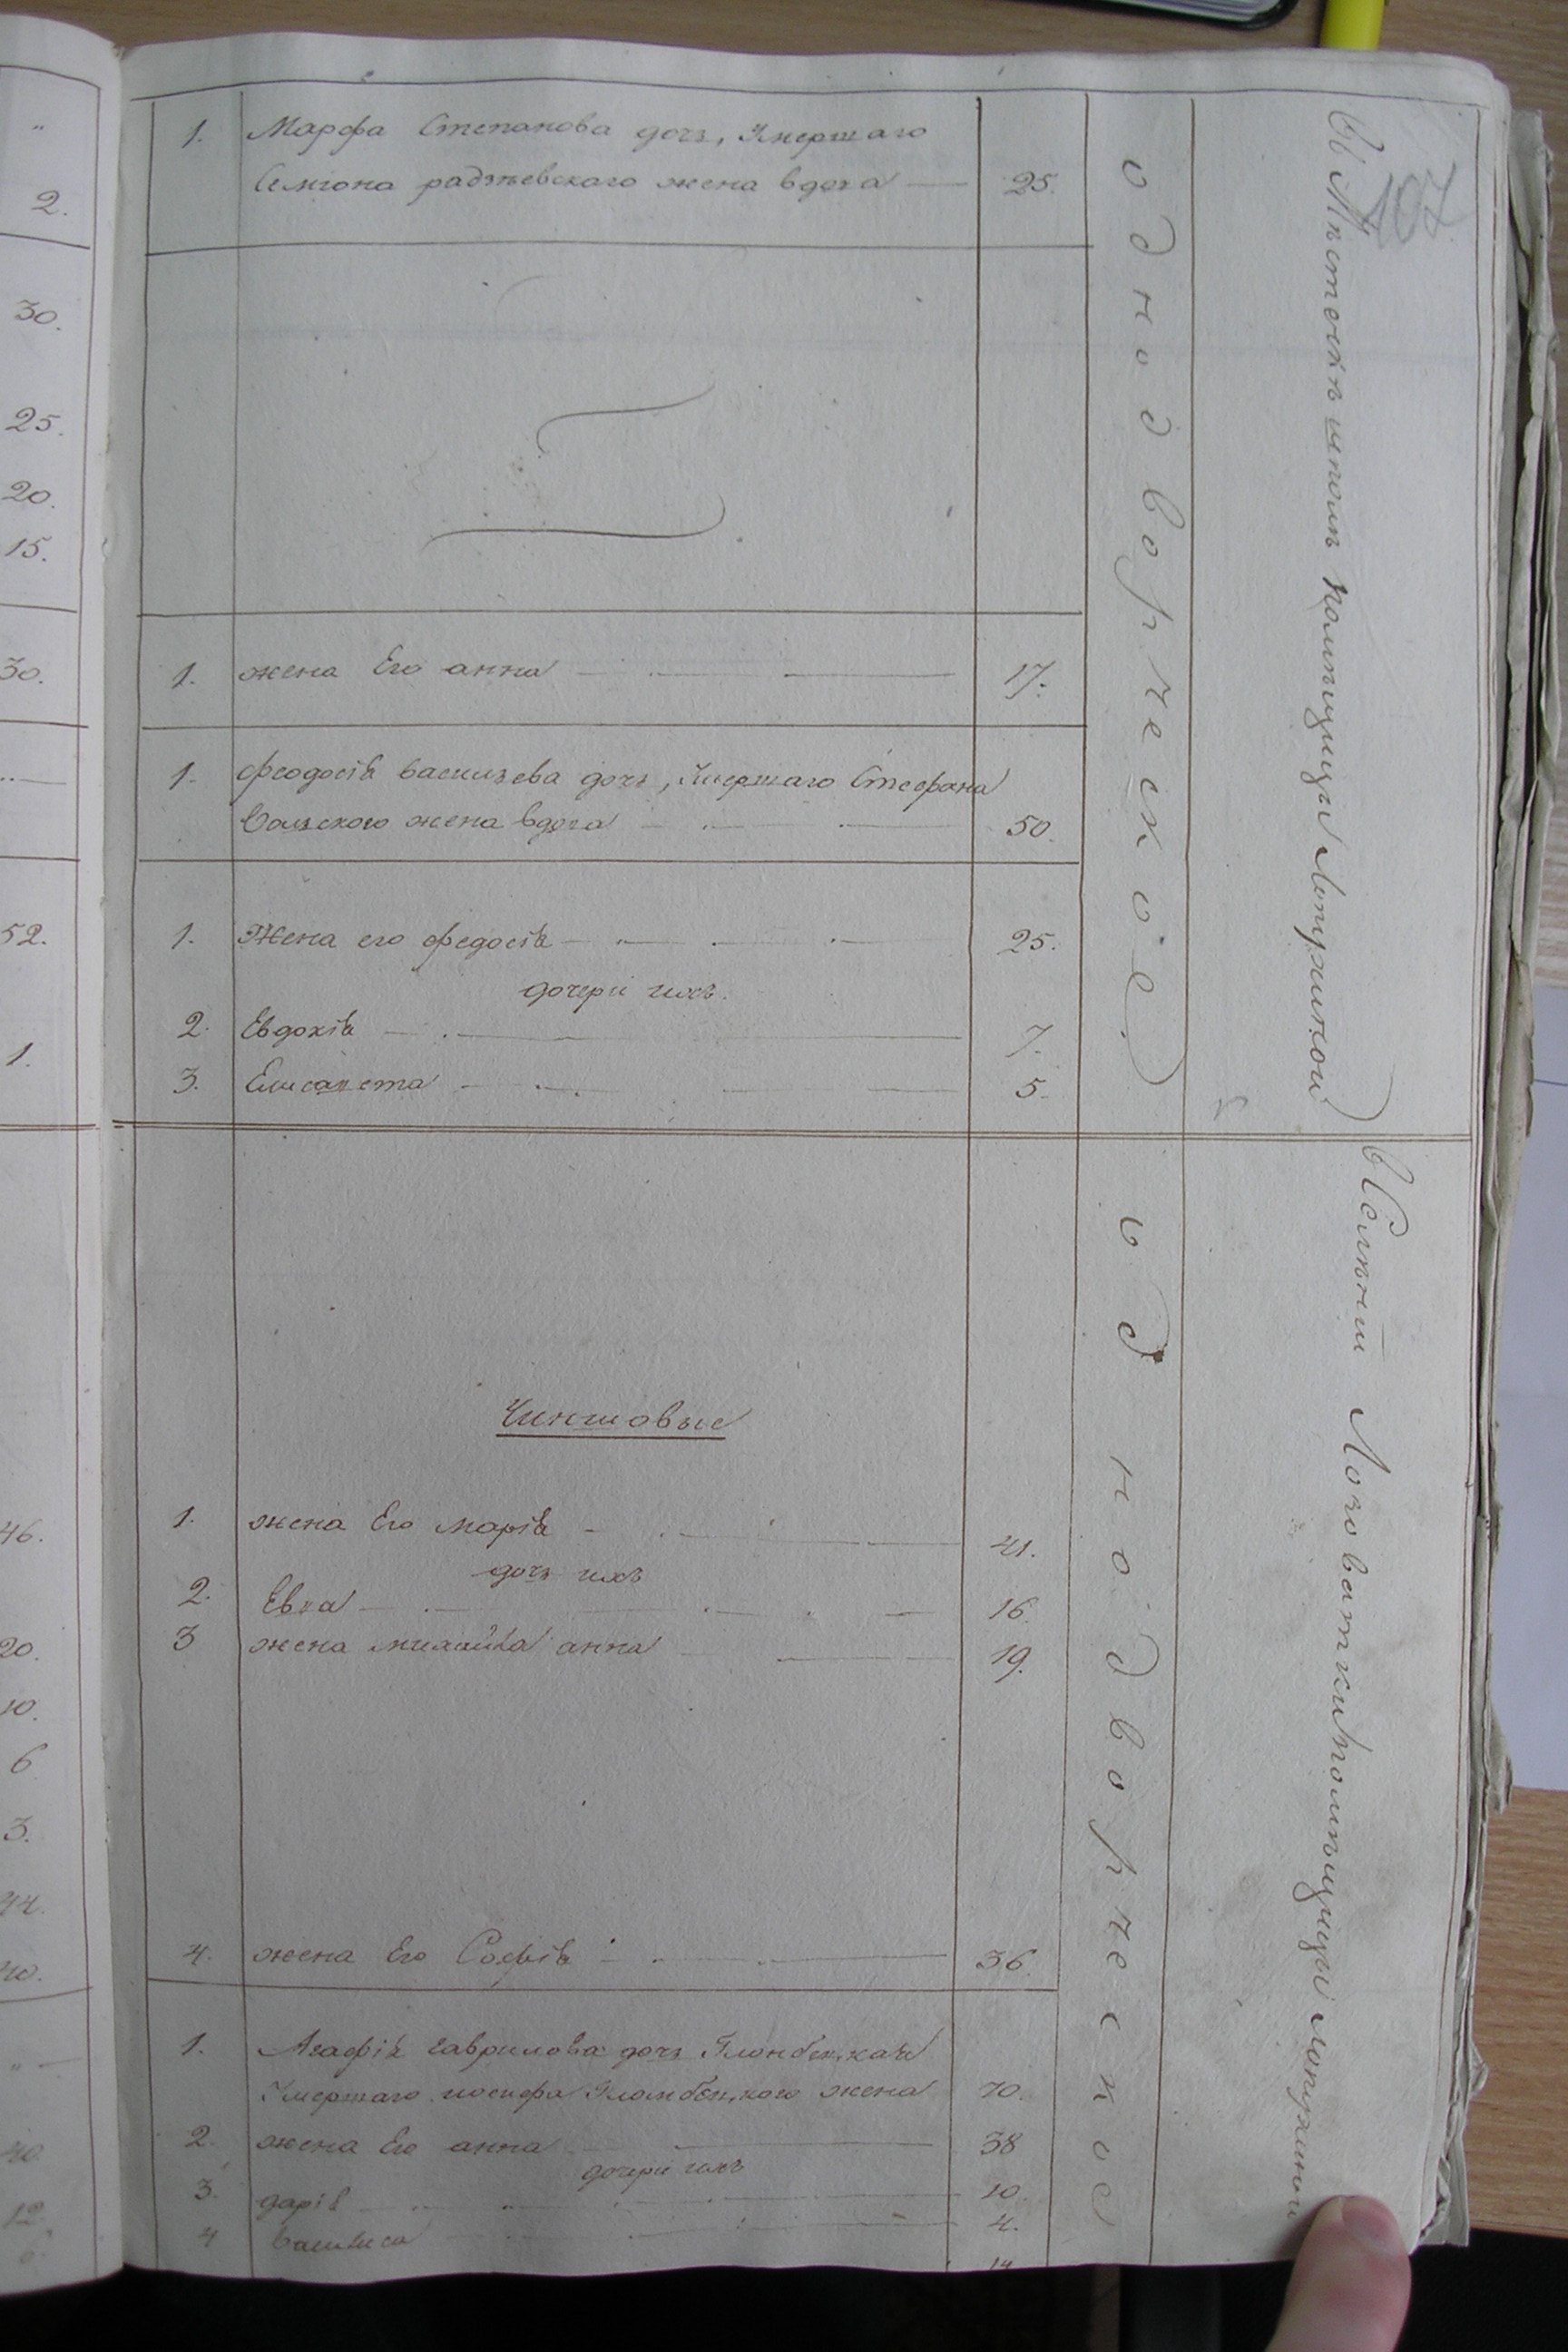 107
1. Марфа Степанова дочь, Умершаго
Семіона радзѣевскаго жена вдова — 25.
1. жена Его анна — 17.
1. феодосія васильева дочь, Умершаго Стефана
вольского жена вдова — 50.
1. Жена его федосія — 25.
дочери ихъ.
2. Евдокія — 7.
3. Елисавета — 5.
Чиншовые
1. жена Его марія — 41.
дочь ихъ
2. Евва — 16.
3 жена михайла анна — 19.
4. жена Его Софія — 36.
1. Агафія гаврилова дочь
Умершаго иосифа жена 70.
2. жена Его анна — 38
дочери ихъ
3. дарія — 10.
4 Василиса — 4.
14
однодворческое.
однодворческое
въ Мѣстечкѣ шполѣ помѣщицы Лопухиной
в Селѣніи Лозоватки помѣщицы лопухиной
"
2.
30.
25.
20.
15.
30.
52.
1.
46.
20.
10.
6
3.
44.
40.
40.
12.